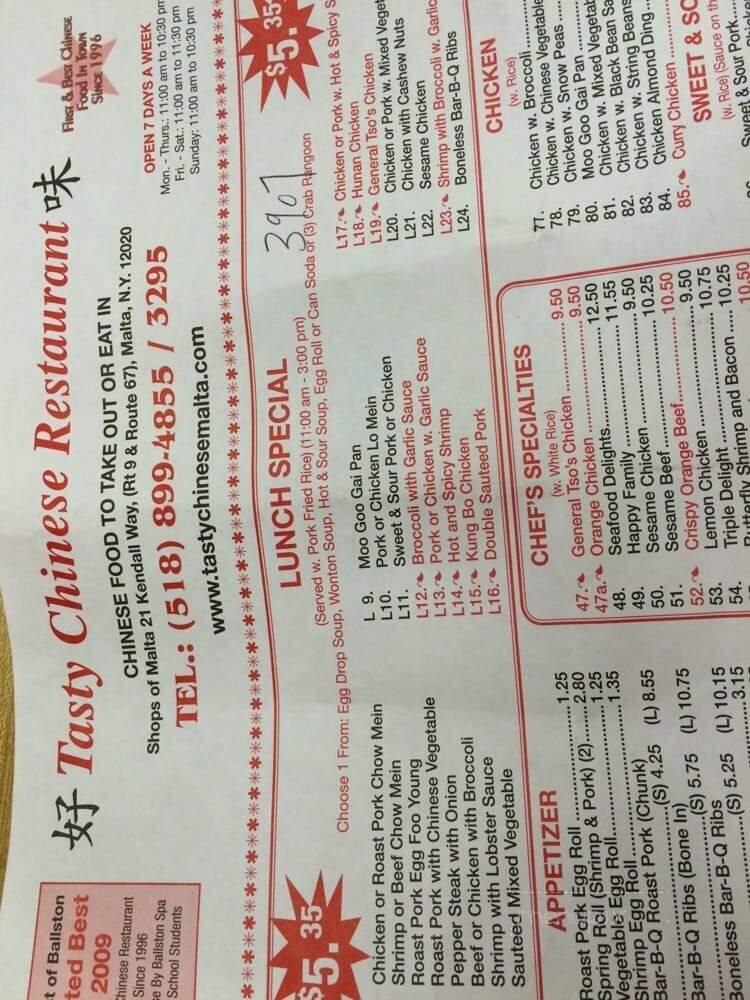 First & Best Chinese
Food In Town
Since 1996
好 Tasty Chinese Restaurant 味
CHINESE FOOD TO TAKE OUT OR EAT IN
Shops of Malta 21 Kendall Way, (Rt 9 & Route 67), Malta, N.Y. 12020
TEL.: (518) 899-4855 / 3295
www.tastychinesemalta.com
OPEN 7 DAYS A WEEK
Mon. - Thurs.: 11:00 am to 10:30 pm
Fri. - Sat.: 11:00 am to 11:30 pm
Sunday: 11:00 am to 10:30 pm
st of Ballston
ted Best
2009
Chinese Restaurant
Since 1996
se By Ballston Spa
School Students
$5.35
LUNCH SPECIAL
$5.35
3907
(Served w. Pork Fried Rice) (11:00 am - 3:00 pm)
Choose 1 From: Egg Drop Soup, Wonton Soup, Hot & Sour Soup, Egg Roll or Can Soda or (3) Crab Rangoon
Chicken or Roast Pork Chow Mein
Shrimp or Beef Chow Mein
Roast Pork Egg Foo Young
Roast Pork with Chinese Vegetable
Pepper Steak with Onion
Beef or Chicken with Broccoli
Shrimp with Lobster Sauce
Sauteed Mixed Vegetable
L 9. Moo Goo Gai Pan
L10. Pork or Chicken Lo Mein
L11. Sweet & Sour Pork or Chicken
L12. Broccoli with Garlic Sauce
L13. Pork or Chicken w. Garlic Sauce
L14. Hot and Spicy Shrimp
L15. Kung Bo Chicken
L16. Double Sauteed Pork
L17. Chicken or Pork w. Hot & Spicy S
L18. Hunan Chicken
L19. General Tso's Chicken
L20. Chicken or Pork w. Mixed Veget
L21. Chicken with Cashew Nuts
L22. Sesame Chicken
L23. Shrimp with Broccoli w. Garlic
L24. Boneless Bar-B-Q Ribs
APPETIZER
Roast Pork Egg Roll 1.25
Spring Roll (Shrimp & Pork) (2) 2.80
Vegetable Egg Roll 1.25
Shrimp Egg Roll 1.35
Bar-B-Q Roast Pork (Chunk)
(S) 4.25 (L) 8.55
Bar-B-Q Ribs (Bone In)
(S) 5.75 (L) 10.75
Boneless Bar-B-Q Ribs
(S) 5.25 (L) 10.15
3.15
CHEF'S SPECIALTIES
(w. White Rice)
47. General Tso's Chicken 9.50
47a. Orange Chicken 9.50
48. Seafood Delights 12.50
49. Happy Family 11.55
50. Sesame Chicken 9.50
51. Sesame Beef 10.25
52. Crispy Orange Beef 10.50
53. Lemon Chicken 9.50
54. Triple Delight 10.75
Butterfly Shrimp and Bacon 10.25
10.50
CHICKEN
(w. Rice)
77. Chicken w. Broccoli
78. Chicken w. Chinese Vegetable
79. Chicken w. Snow Peas
80. Moo Goo Gai Pan
81. Chicken w. Mixed Vegetab
82. Chicken w. Black Bean Sa
83. Chicken w. String Beans
84. Chicken Almond Ding
85. Curry Chicken
SWEET & SO
(w. Rice) (Sauce on th
Sweet & Sour Pork